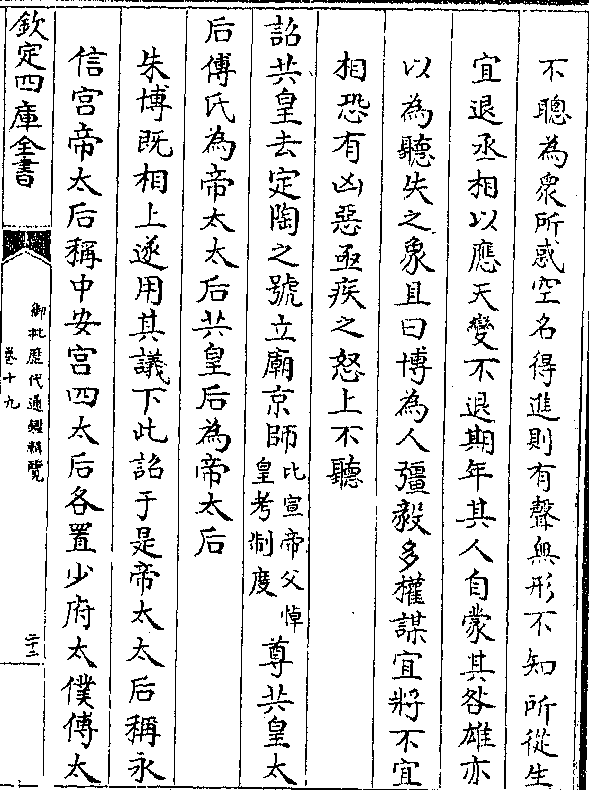 不聰為衆所惑空名得進則有聲無形不知所從生
宜退丞相以應天變不退期年其人自蒙其咎雄亦
以為聽失之象且曰博為人彊毅多權謀宜將不宜
相恐有凶惡亟疾之怒上不聽
詔共皇去定陶之號立廟京師比宣帝父悼皇考制度尊共皇太
后傅氏為帝太太后共皇后為帝太后
朱博既相上遂用其議下此詔于是帝太太后稱永
信宫帝太后稱中安宫四太后各置少府太僕傅太
欽定四庫全書
御批歷代通鑑輯覽
卷十九
二十二